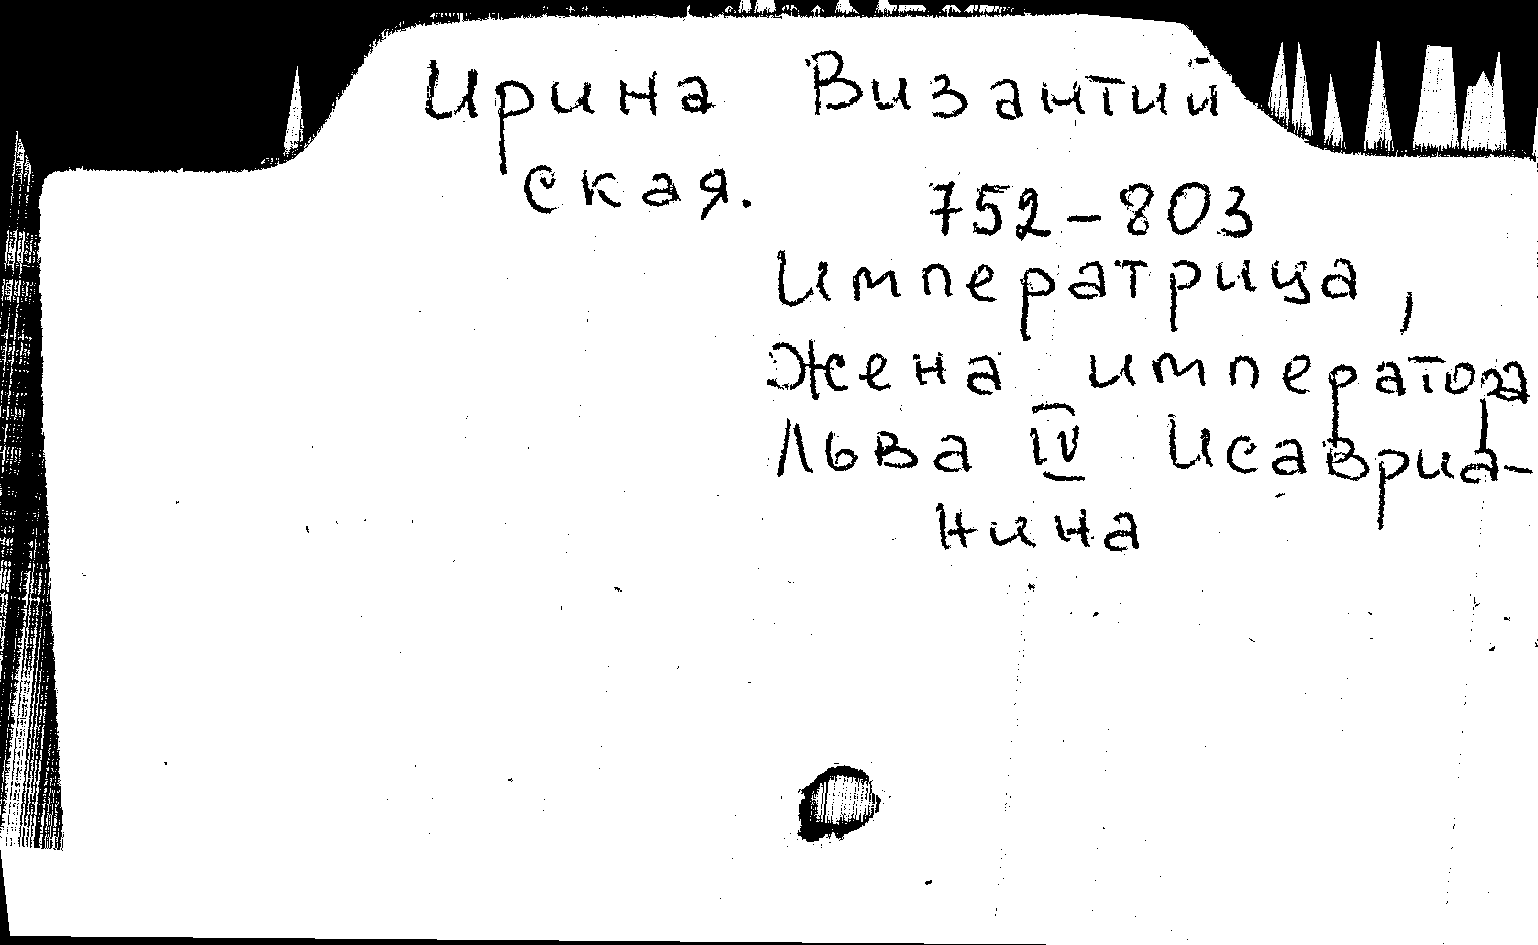 Ирина Византий
ская.
752-803
Императрица,
жена императора
Льва IV Исавриа-
нина